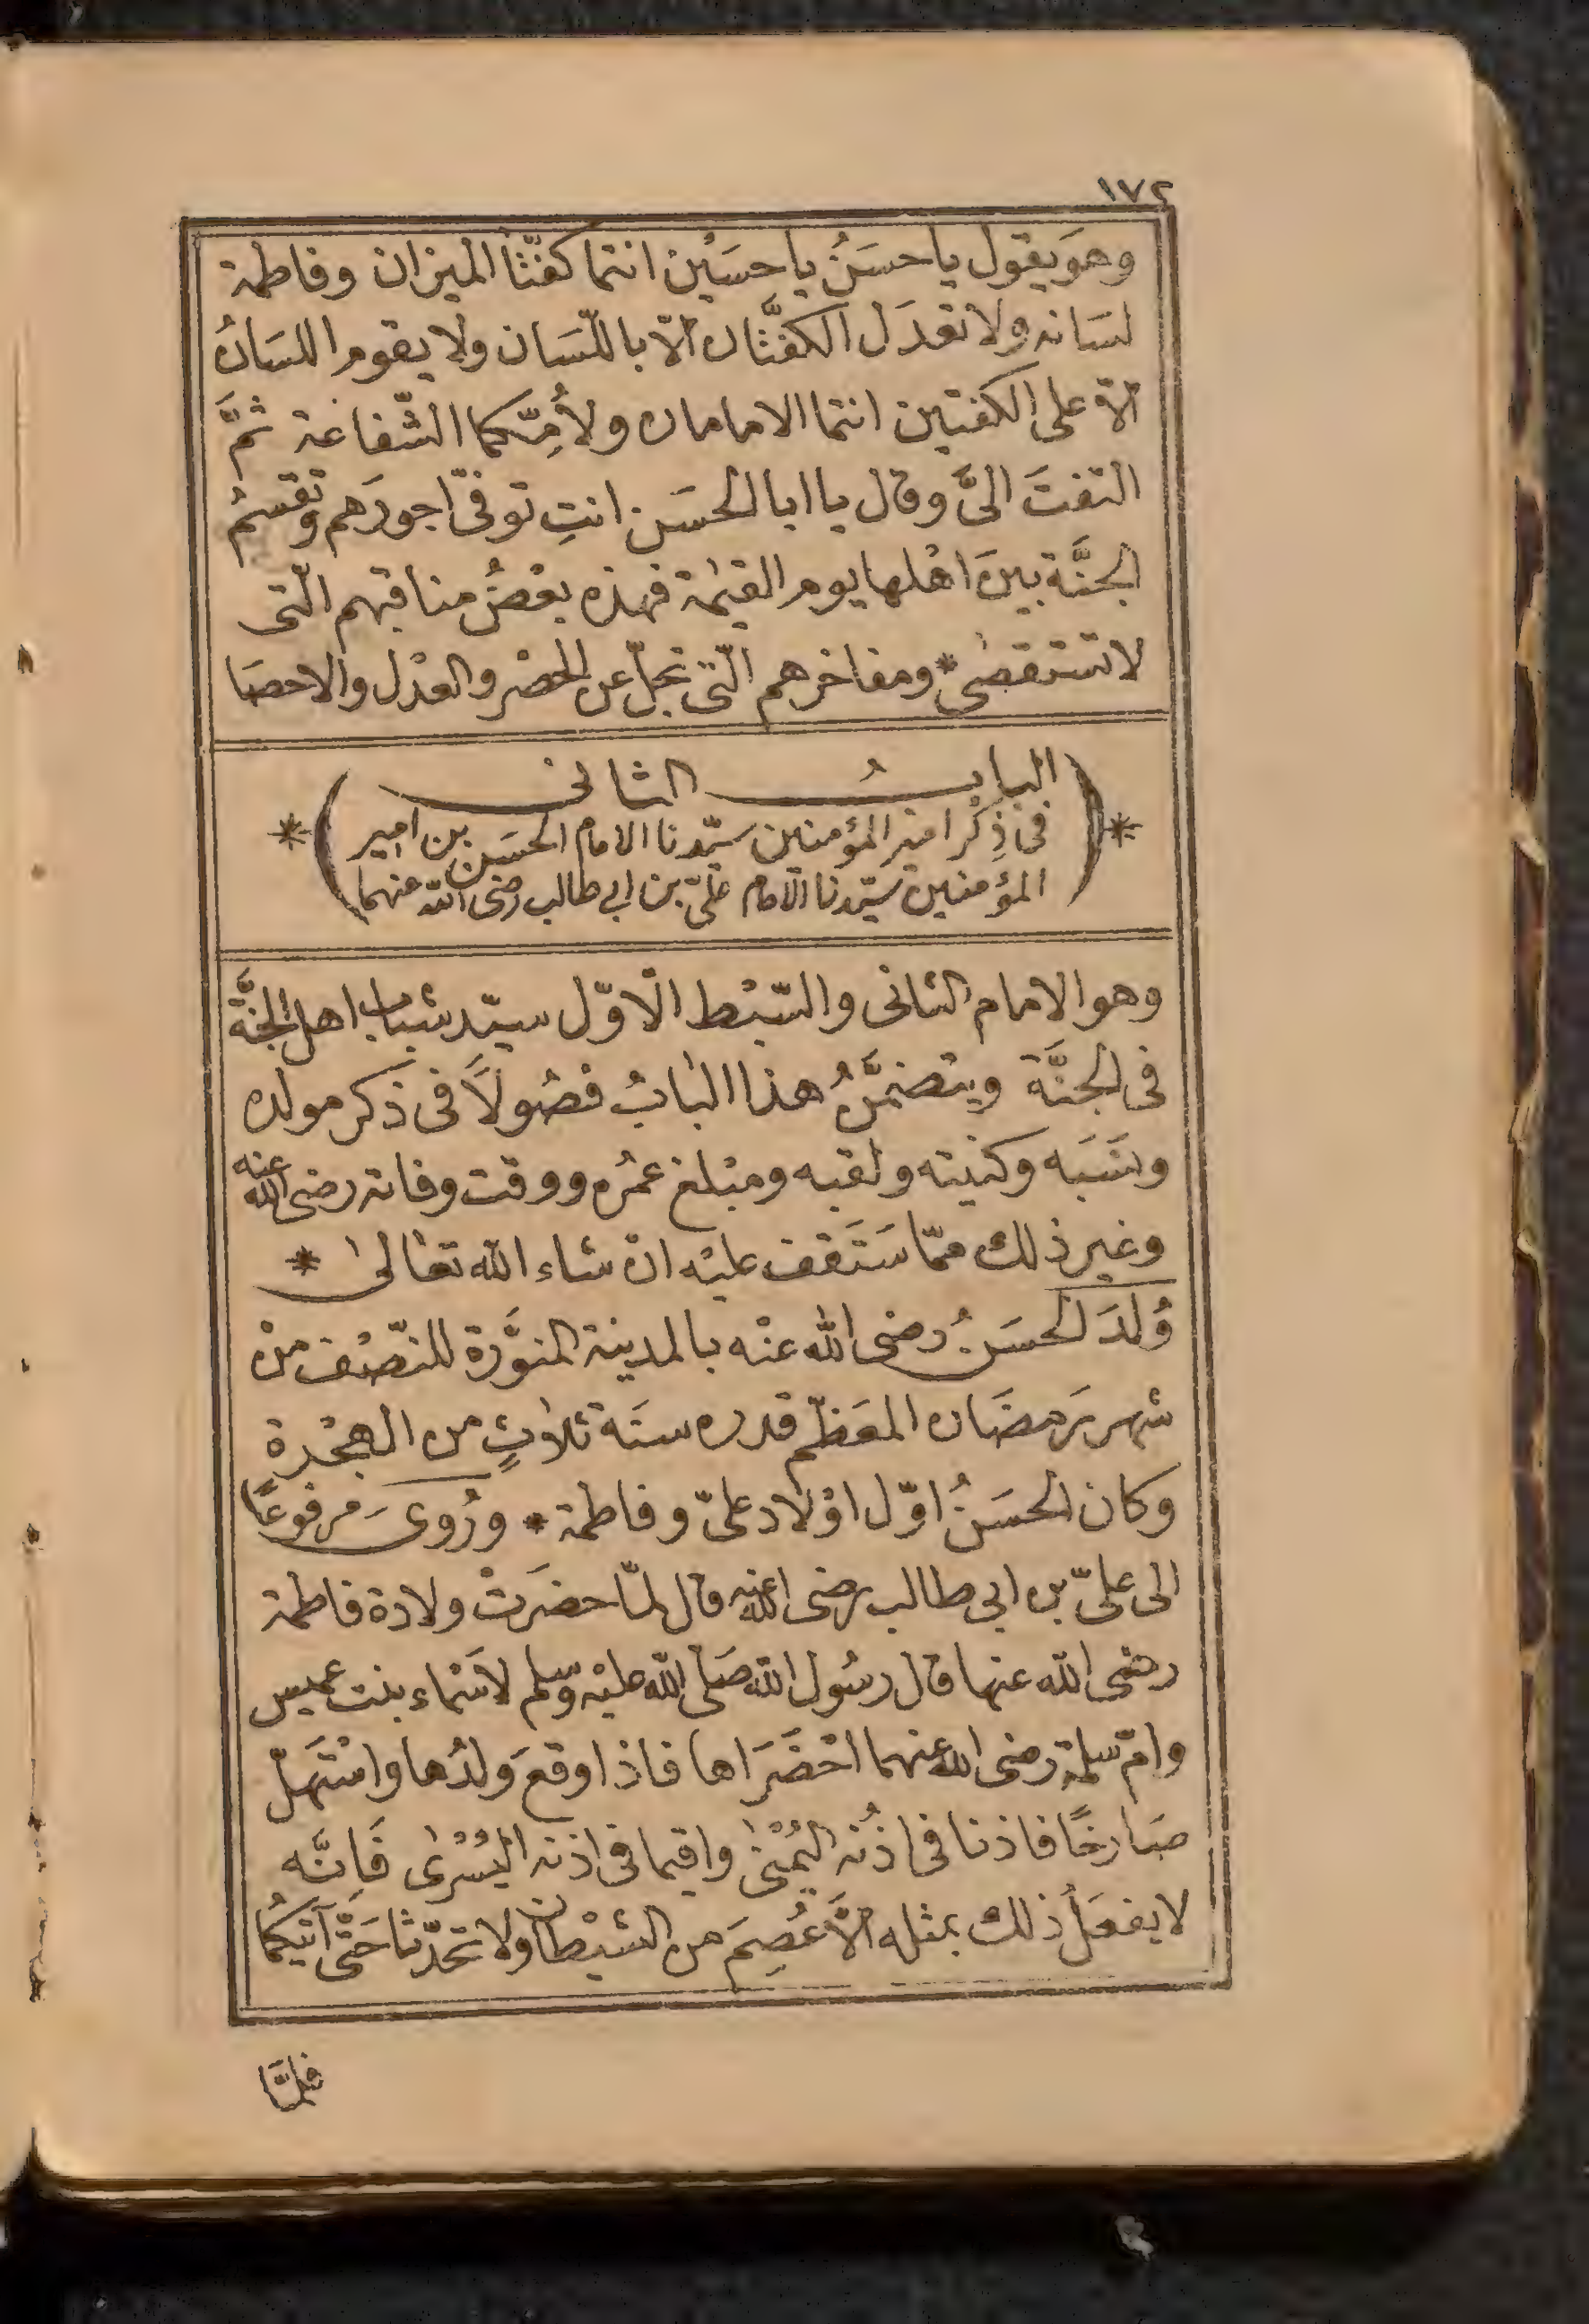 ١٧٢
وهوَ يقول يا حسَنُ يا حسَيْن انتما كفّتا الميزان وفاطمة
لسَانه ولا تعدَل الكفَّتان الّا باللّسَان ولا يقوم اللسَانُ
الّا على الكفتين انتما الامامان ولأُمِّكما الشّفاعة ثمَّ
التفتَ الىَّ وقال يا ابا الحسَن انتِ توفّى اجورَهم وتقسمُ
الجنَّة بينَ اهْلها يوم القيٰمة فهذه بعْضُ مناقبهم الّتى
لا تستقصٰى * ومفاخرهم الّتى تجلّ عن الحصْر والعدْل والاحصَا
البابُ الثانى
* ( فى ذِكْر امير المؤمنين سيّدنا الامام الحسَن بن امير ) *
المؤمنين سيّدنا الامام علىّ بن ابى طالب رضى الله عنهما
وهو الامام الثانى والسّبْط الاوّل سيّد شباب اهل الجنَّة
فى الجنَّة ويتضمَّنُ هذا البابُ فصُولاً فى ذكر مولده
ونسَبَه وكنيته ولقبه ومبْلغ عمُره ووقت وفاته رضى الله عنه
وغير ذلك ممّا سَتَقف عليْه ان شاء الله تعالىٰ *
وُلدَ الحسَنُ رضى الله عنْه بالمدينة المنوَّرة للنّصْف منْ
شهر رَمضَان المعَظّم قدره سنَة ثلاثٍ من الهجْرة
وكان الحسَنُ اوّل اوْلاد علىّ وفاطمة * ورُوىَ مَرفوعًا
الى علىّ بن ابى طالب رضى الله عنه قال لمّا حضرَتْ ولادة فاطمة
رضى الله عنها قال رسُول الله صَلّى الله عليْه وسلم لاسْماء بنت عميس
وامّ سلمة رضى الله عنهما احْضَرَاها فاذا وقعَ ولدُها واسْتَهلّ
صَارخًا فاذنا فى اذُنه اليُمْنىٰ واقيما فى اذنه اليُسْرىٰ فَإنَّه
لا يفعَلُ ذلك بمثله الَّا عُصِمَ من الشيْطان ولا تحدّثا حَتّٰى آتيَكُما
فلمَّا